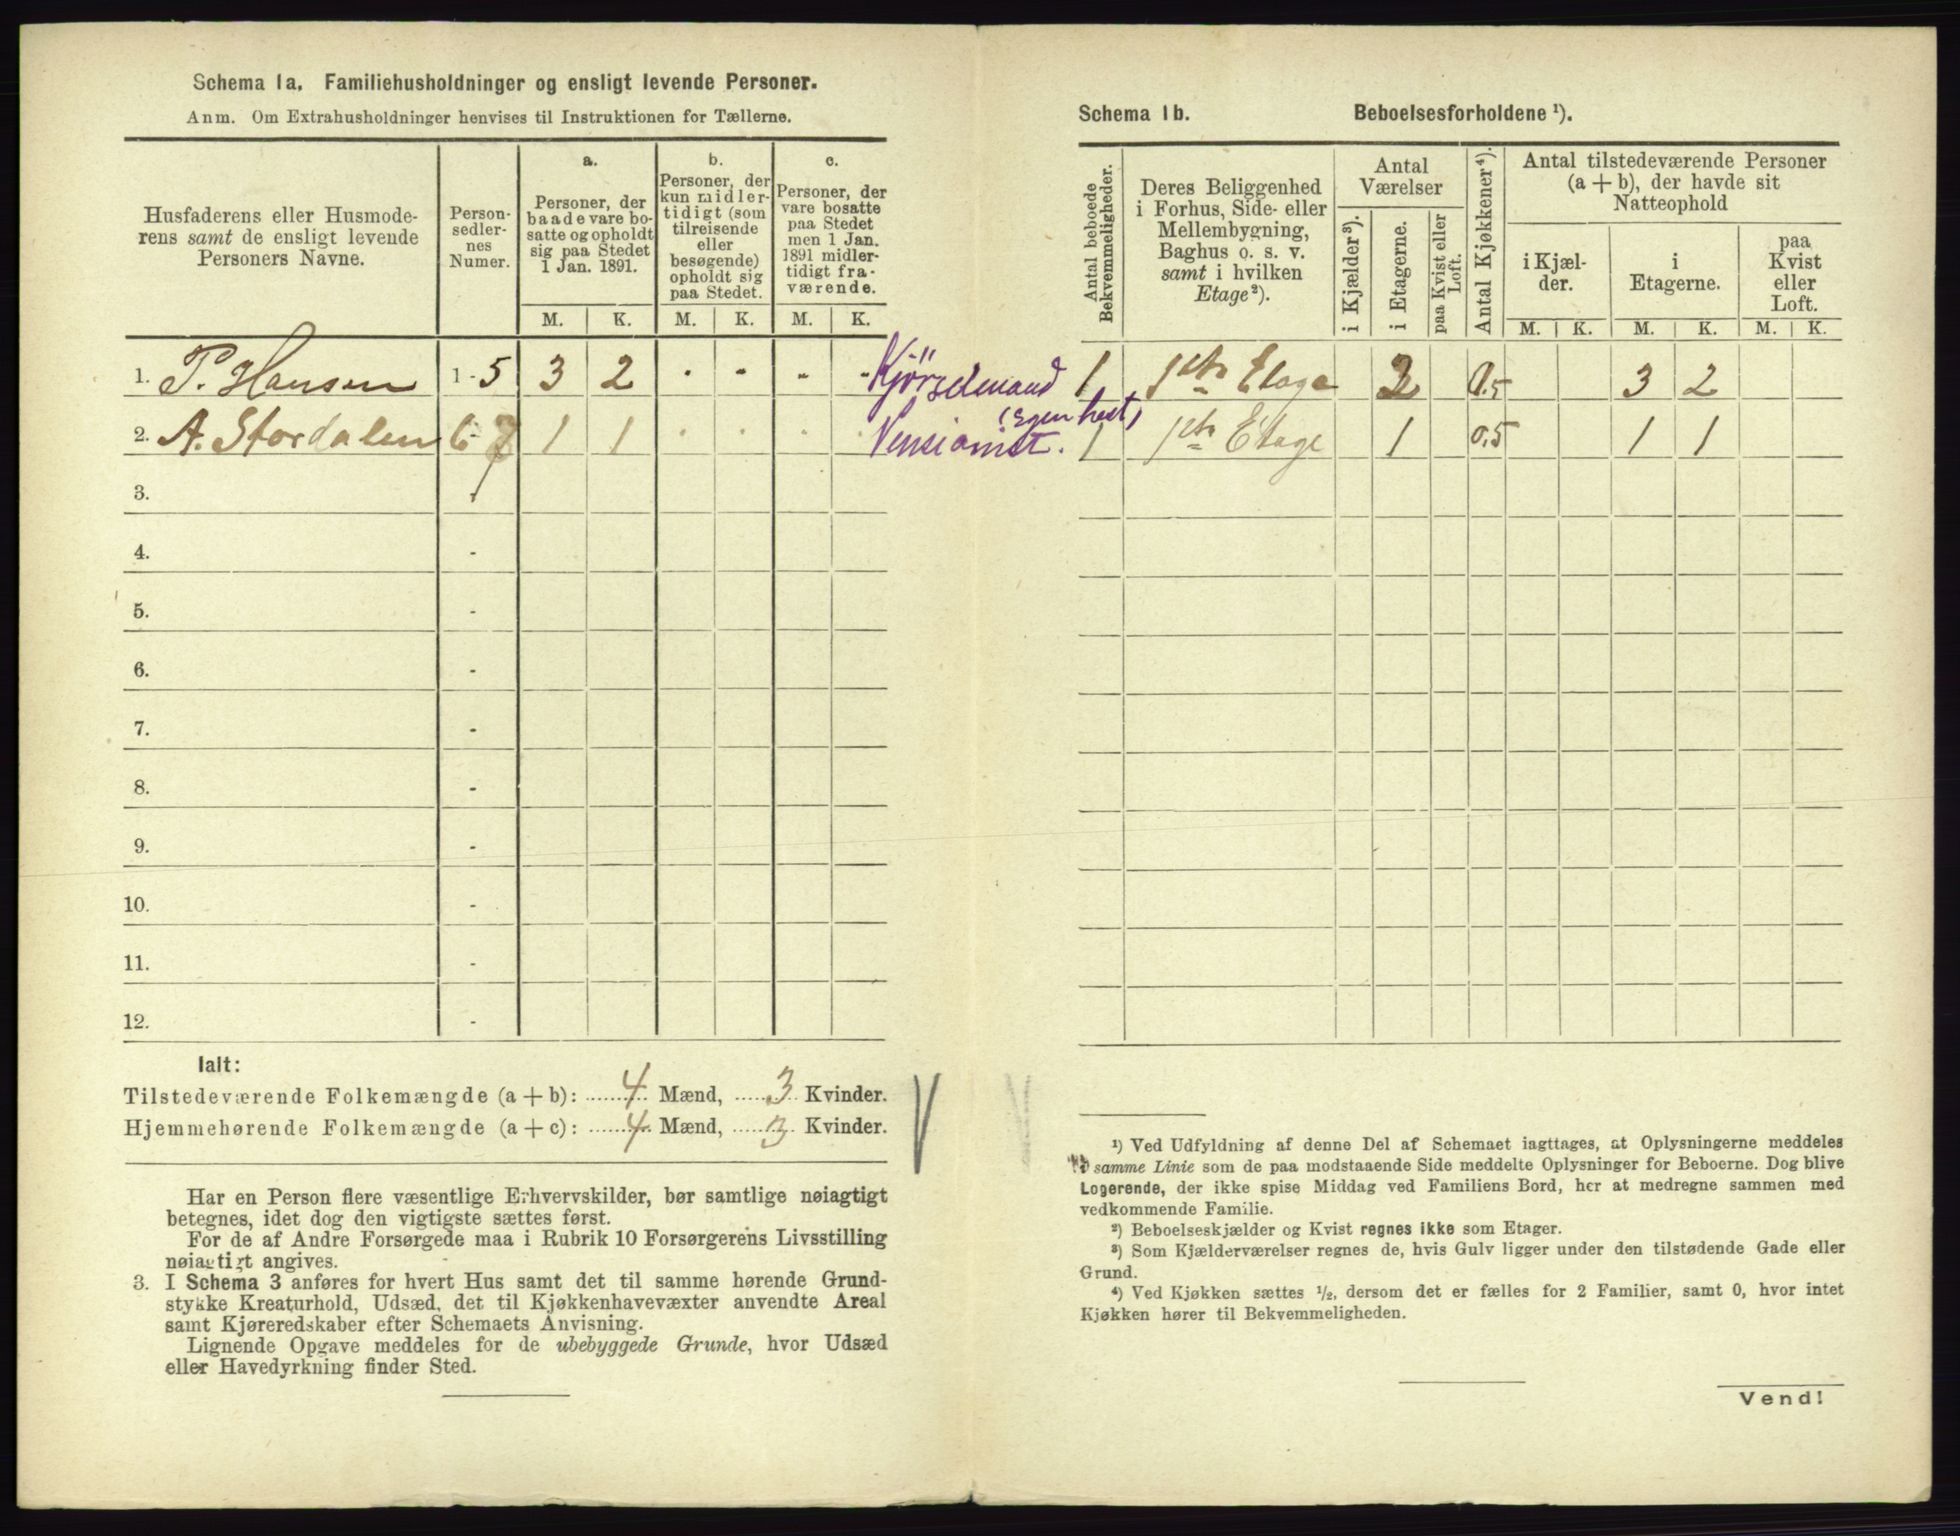 Schema 1a. Familiehusholdninger og ensligt levende Personer.
Anm. Om Extrahusholdninger henvises til Instruktionen for Tællerne.
Husfaderens eller Husmode-
rens samt de ensligt levende
Personers Navne.
Person-
sedler-
nes
Numer.
a.
Personer, der
baade vare bo-
satte og opholdt
sig paa Stedet
1 Jan. 1891.
b.
Personer, der
kun midler-
tidigt (som
tilreisende
eller
besøgende)
opholdt sig
paa Stedet.
c.
Personer, der
vare bosatte
paa Stedet
men 1 Jan.
1891 midler-
tidigt fra-
værende.
M. K. M. K. M. K.
1. P. Hansen 1 - 5 3 2 - - - - Kjörselmand
(egen hest)
2. A. Stordalen 6 - 7 1 1 - - - - Pensionist.
3. -
4. -
5. -
6. -
7. -
8. -
9. -
10. -
11. -
12. -
Ialt:
Tilstedeværende Folkemængde (a + b): 4 Mænd, 3 Kvinder.
Hjemmehørende Folkemængde (a + c): 4 Mænd, 3 Kvinder.
Har en Person flere væsentlige Erhvervskilder, bør samtlige nøiagtigt
betegnes, idet dog den vigtigste sættes først.
For de af Andre Forsørgede maa i Rubrik 10 Forsørgerens Livsstilling
nøiagtigt angives.
3. I Schema 3 anføres for hvert Hus samt det til samme hørende Grund-
stykke Kreaturhold, Udsæd, det til Kjøkkenhavevæxter anvendte Areal
samt Kjøreredskaber efter Schemaets Anvisning.
Lignende Opgave meddeles for de ubebyggede Grunde, hvor Udsæd
eller Havedyrkning finder Sted.
Schema 1b. Beboelsesforholdene ¹).
Antal beboede
Bekvemmeligheder.
Deres Beliggenhed
i Forhus, Side- eller
Mellembygning,
Baghus o. s. v.
samt i hvilken
Etage²).
Antal
Værelser
i Kjælder³).
i Etagerne.
paa Kvist eller
Loft.
Antal Kjøkkener⁴).
Antal tilstedeværende Personer
(a + b), der havde sit
Natteophold
i Kjæl-
der.
i
Etagerne.
paa
Kvist
eller
Loft.
M. K. M. K. M. K.
1 1ste Etage 2 0.5 3 2
1 1ste Etage 1 0.5 1 1
¹) Ved Udfyldning af denne Del af Schemaet iagttages, at Oplysningerne meddeles
i samme Linie som de paa modstaaende Side meddelte Oplysninger for Beboerne. Dog blive
Logerende, der ikke spise Middag ved Familiens Bord, her at medregne sammen med
vedkommende Familie.
²) Beboelseskjælder og Kvist regnes ikke som Etager.
³) Som Kjælderværelser regnes de, hvis Gulv ligger under den tilstødende Gade eller
Grund.
⁴) Ved Kjøkken sættes ½, dersom det er fælles for 2 Familier, samt 0, hvor intet
Kjøkken hører til Bekvemmeligheden.
Vend!